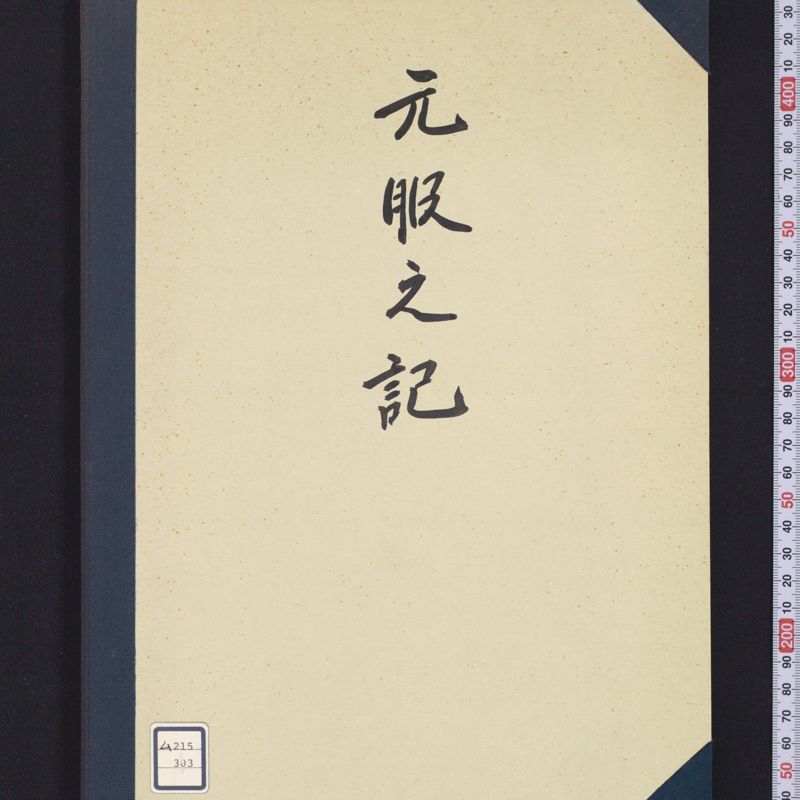 元服之記
ム215
303
30
20
10
400
90
80
70
60
50
40
30
20
10
300
90
80
70
60
50
40
30
20
10
200
90
80
70
60
50
40